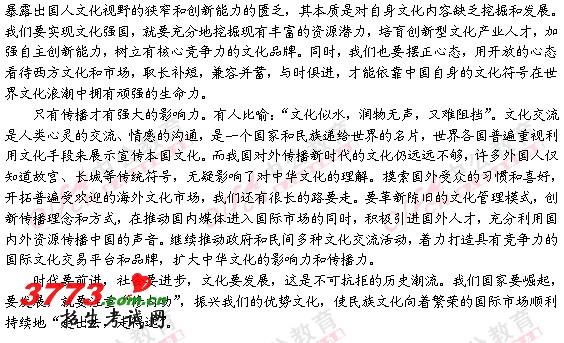 暴露出国人文化视野的狭窄和创新能力的匮乏，其本质是对自身文化内容缺乏挖掘和发展。
我们要实现文化强国，就要充分地挖掘现有丰富的资源潜力，培育创新型文化产业人才，加
强自主创新能力，树立有核心竞争力的文化品牌。同时，我们也要摆正心态，用开放的心态
看待西方文化和市场，取长补短，兼容并蓄，与时俱进，才能依靠中国自身的文化符号在世
界文化浪潮中拥有顽强的生命力。
只有传播才有强大的影响力。有人比喻：“文化似水，润物无声，又难阻挡”。文化交流
是人类心灵的交流、情感的沟通，是一个国家和民族递给世界的名片，世界各国普遍重视利
用文化手段来展示宣传本国文化。而我国对外传播新时代的文化仍远远不够，许多外国人仅
知道故宫、长城等传统符号，无疑影响了对中华文化的理解。摸索国外受众的习惯和喜好，
开拓普遍受欢迎的海外文化市场，我们还有很长的路要走。要革新陈旧的文化管理模式，创
新传播理念和方式，在推动国内媒体进入国际市场的同时，积极引进国外人才，充分利用国
内外资源传播中国的声音。继续推动政府和民间多种文化交流活动，着力打造具有竞争力的
国际文化交易平台和品牌，扩大中华文化的影响力和传播力。
时代要前进，社会要进步，文化要发展，这是不可抗拒的历史潮流。我们国家要崛起，
要发展，就要 力”，振兴我们的优势文化，使民族文化向着繁荣的国际市场顺利
持续地“走出去，走得远”。
3773.com.cn
招生考试网